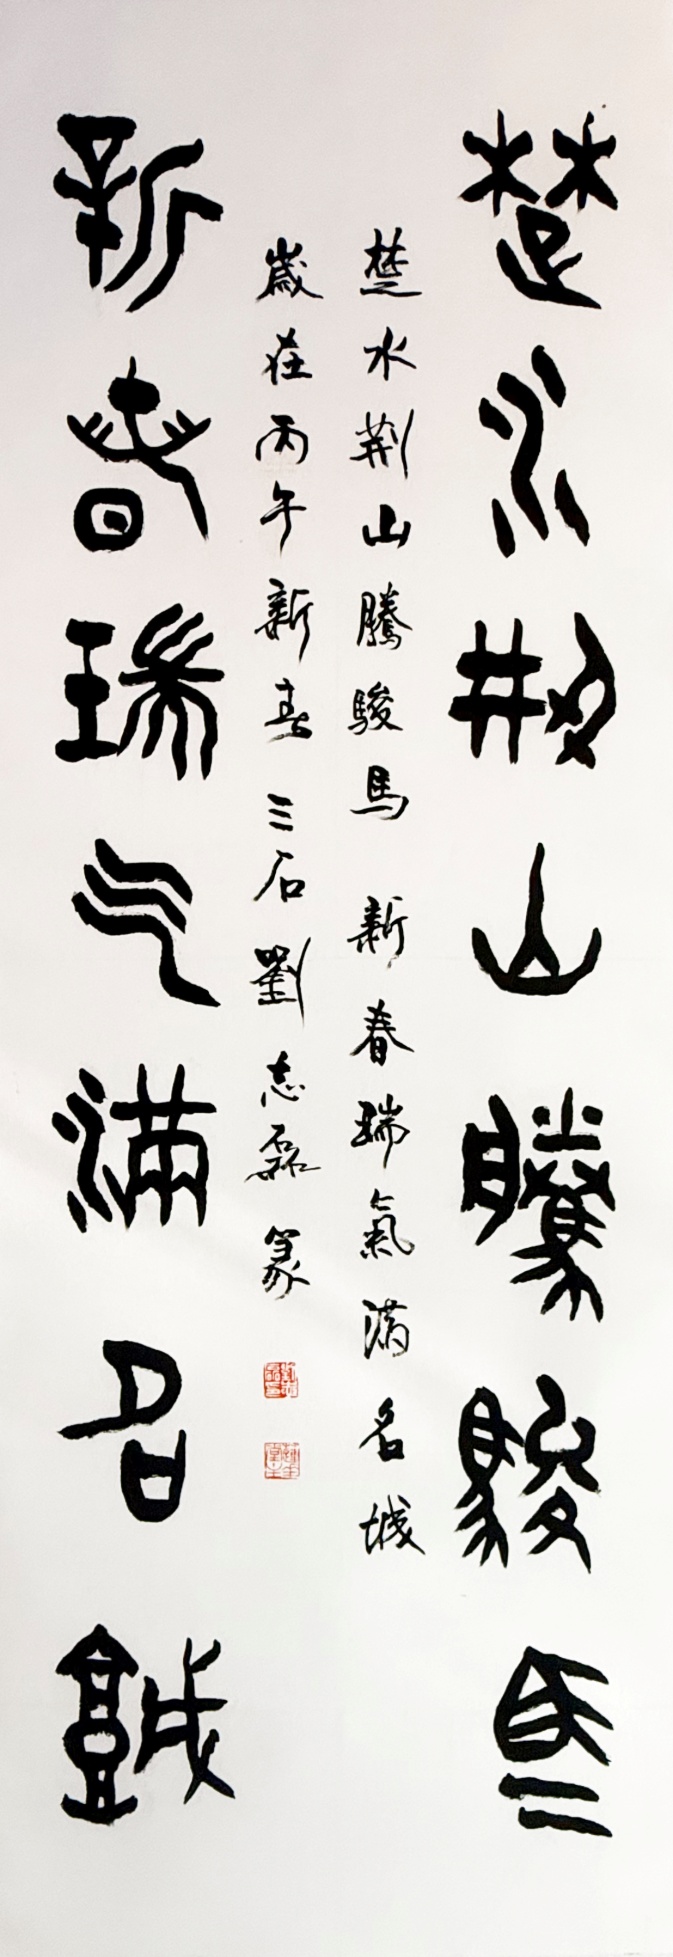 楚水荆山騰駿馬
楚水荆山騰駿馬 新春瑞氣满名城
歲在丙午新春三石劉志磊篆
新春瑞气满名城